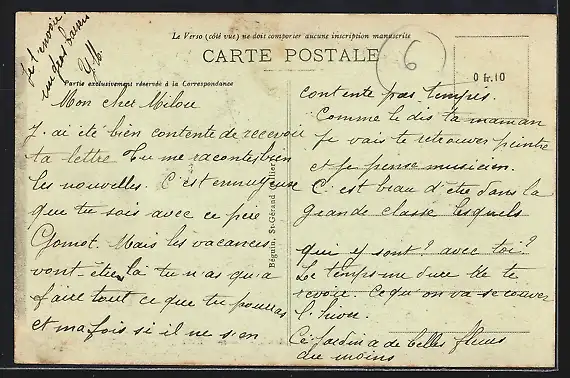 Je t'envoie
un gros baiser
Le Verso (côté vue) ne doit comporter aucune inscription manuscrite
CARTE POSTALE
6
0 fr.10
Partie exclusivement réservée à la Correspondance
Mon cher Milou
J'ai été bien contente de recevoir
ta lettre tu me racontes bien
les nouvelles. C'est ennuyeux
que tu sois avec ce pére
Gomot. Mais les vacances
vont être là tu n'as qu'a
faire tout ce que tu pourras
et ma fois si il ne s'en
Béguin, St-Gérand
contente pas tempis.
Comme le dis ta maman
je vais te retrouver peintre
et je pense musicien.
C'est beau d'etre dans la
grande classe lesquels
qui y sont? avec toi?
Le temps me dure de te
revoir. Ce qu'on va se trouver
l'hiver.
Ce jardin a de belles fleurs
du moins